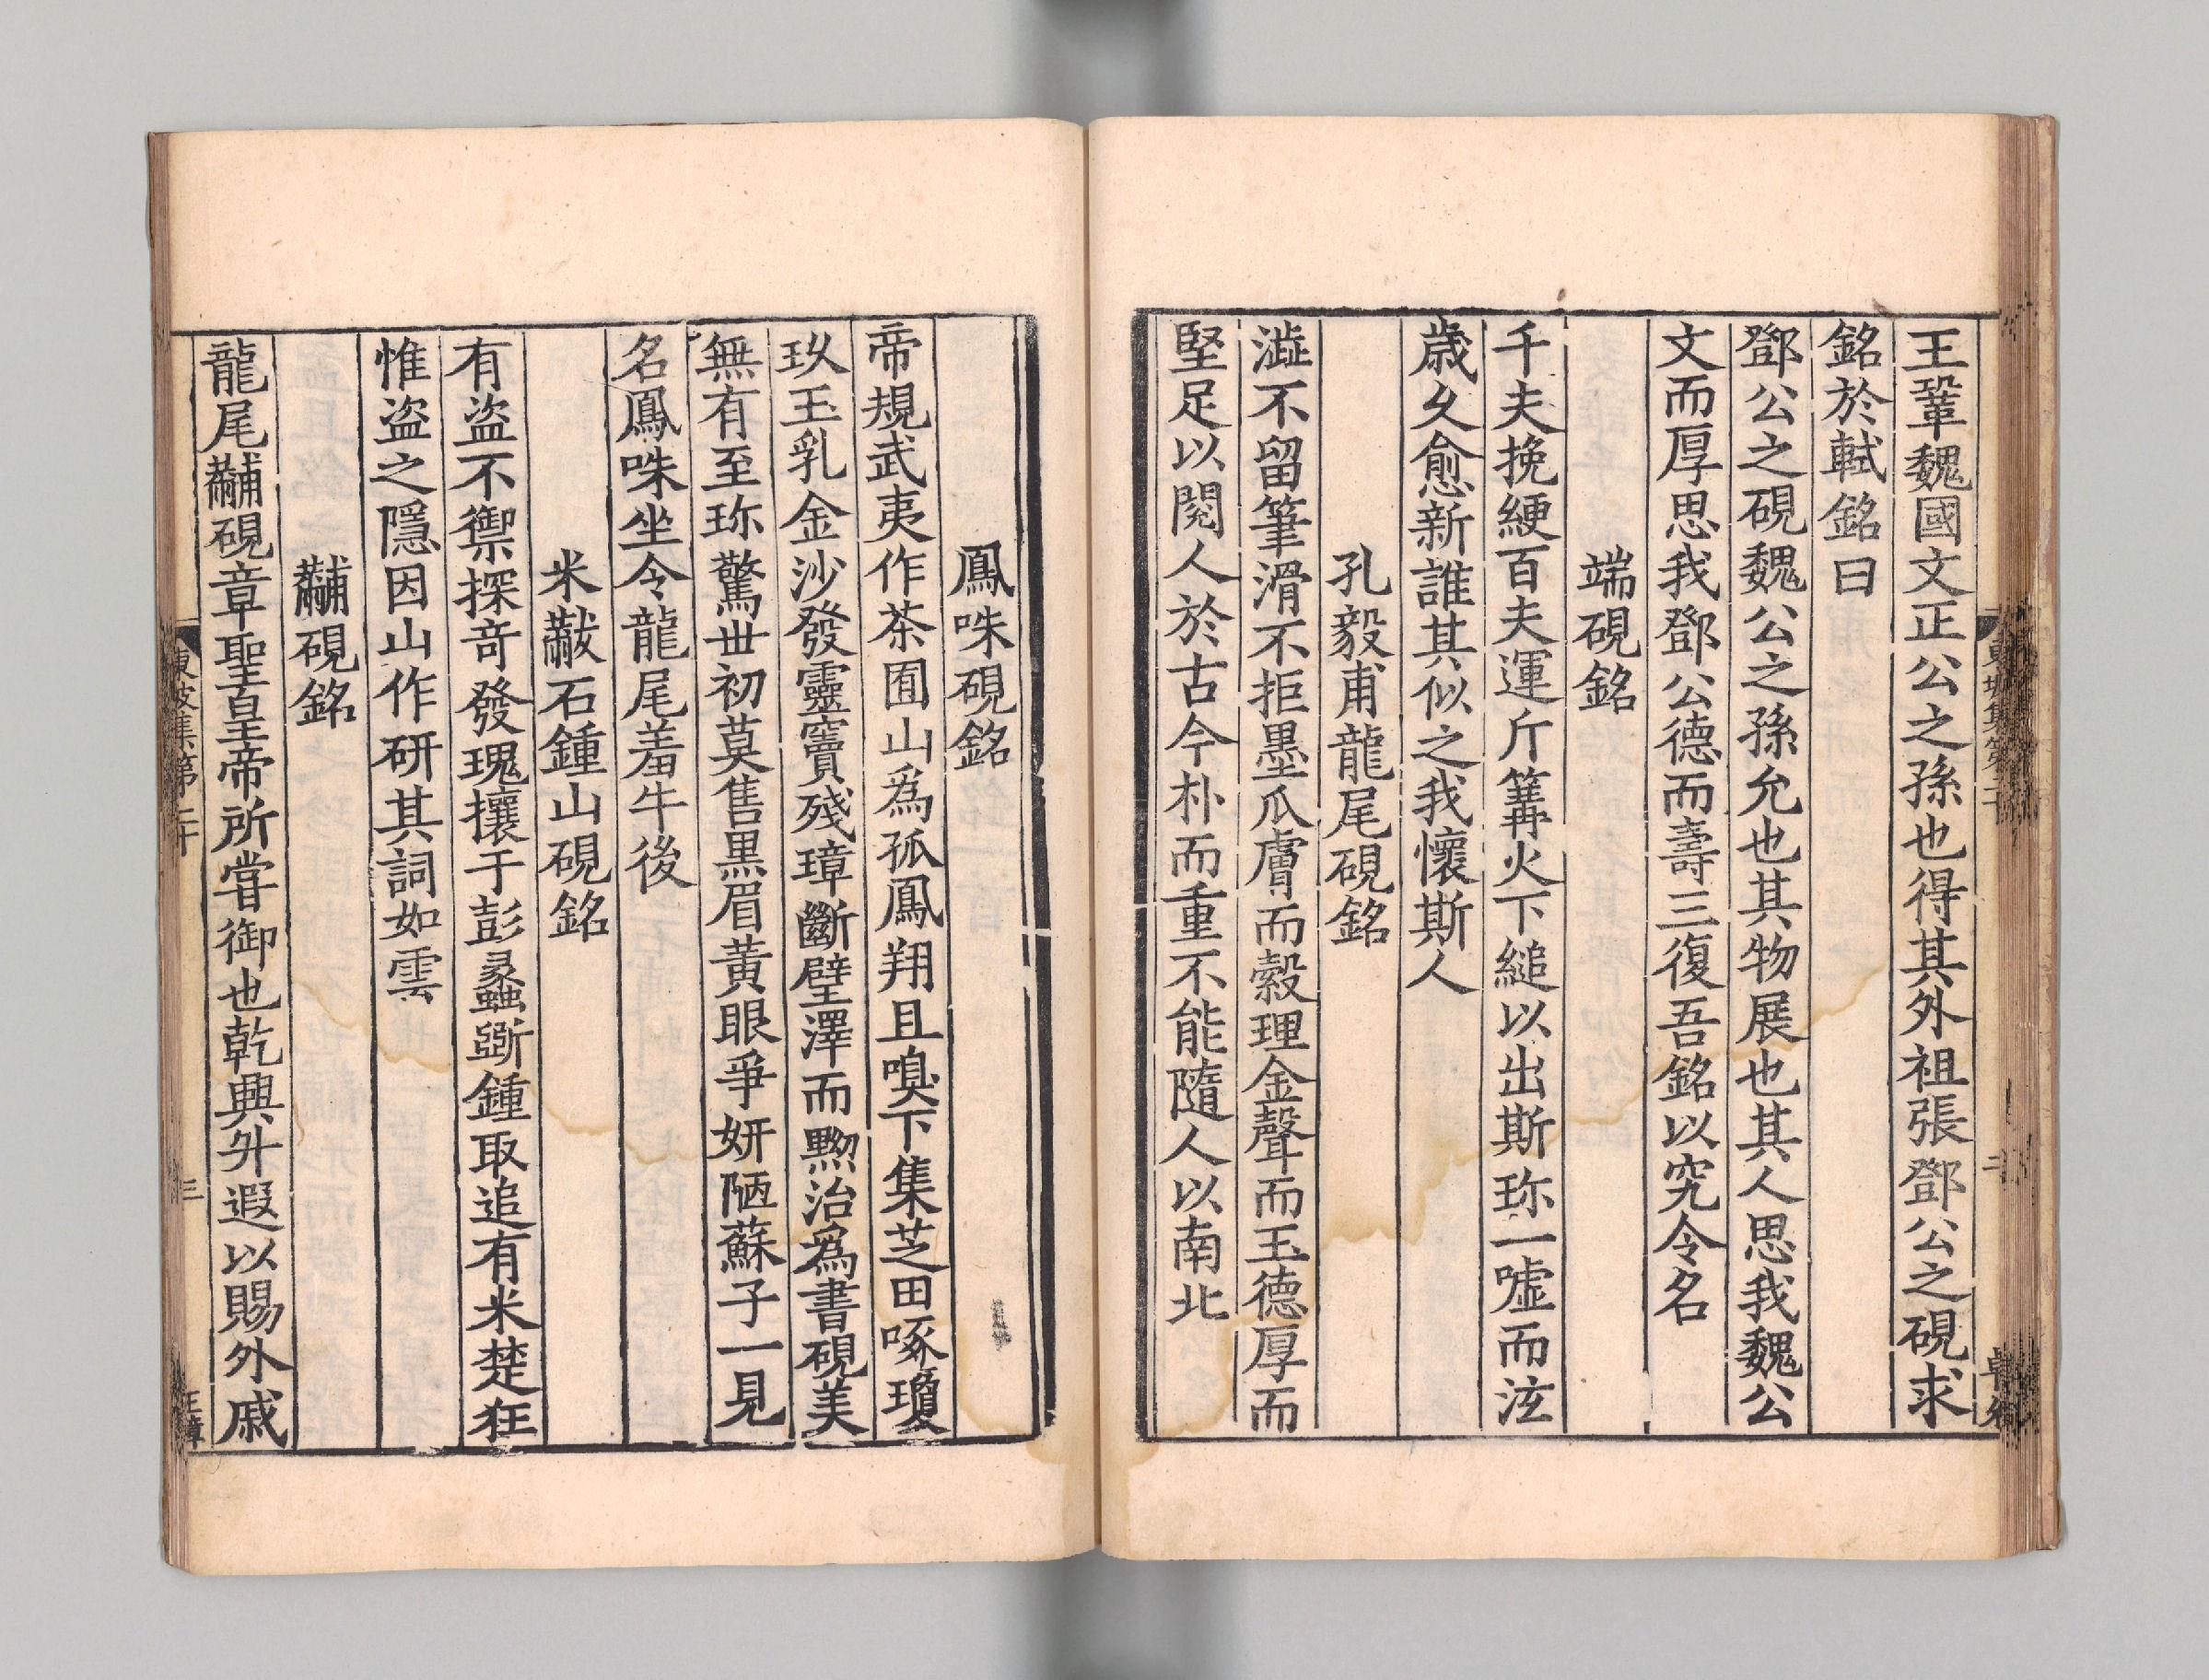 王鞏魏國文正公之孫也得其外祖張鄧公之硯求
銘於軾銘曰
鄧公之硯魏公之孫允也其物展也其人思我魏公
文而厚思我鄧公德而壽三復吾銘以究令名
端硯銘
千夫挽綆百夫運斤篝火下縋以出斯珎一噓而泫
歲久愈新誰其似之我懷斯人
孔毅甫龍尾硯銘
澁不留筆滑不拒墨瓜膚而縠理金聲而玉德厚而
堅足以閱人於古今朴而重不能隨人以南北
鳳咮硯銘
帝規武夷作茶囿山為孤鳳翔且嗅下集芝田啄瓊
玖玉乳金沙發靈竇殘璋斷璧澤而黝治為書硯美
無有至珎驚世初莫售黒眉黃眼爭妍陋蘇子一見
名鳳咮坐令龍尾羞牛後
米黻石鍾山硯銘
有盜不禦探奇發瑰攘于彭蠡斲鍾取追有米楚狂
惟盜之隱因山作研其詞如雲
黼硯銘
龍尾黼硯章聖皇帝所嘗御也乾興升遐以賜外戚
東坡集第二十
三